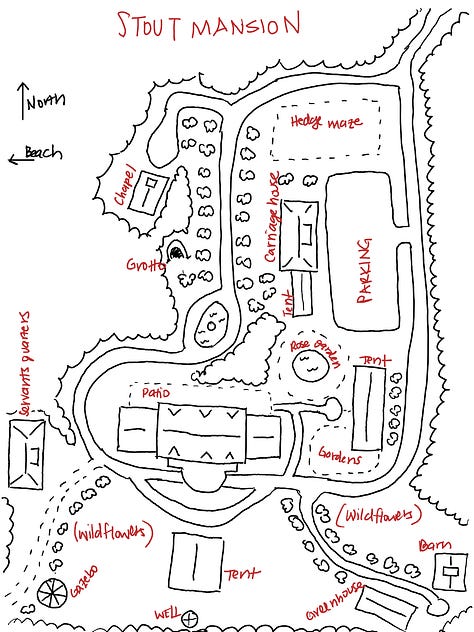 STOUT MANSION
NORTH
Beach
Hedge maze
Chapel
Carriage house
PARKING
Grotto
Tent
Rose garden
Tent
servants quarters
Patio
Gardens
(wildflowers)
(wildflowers)
Barn
Tent
Gazebo
Greenhouse
WELL